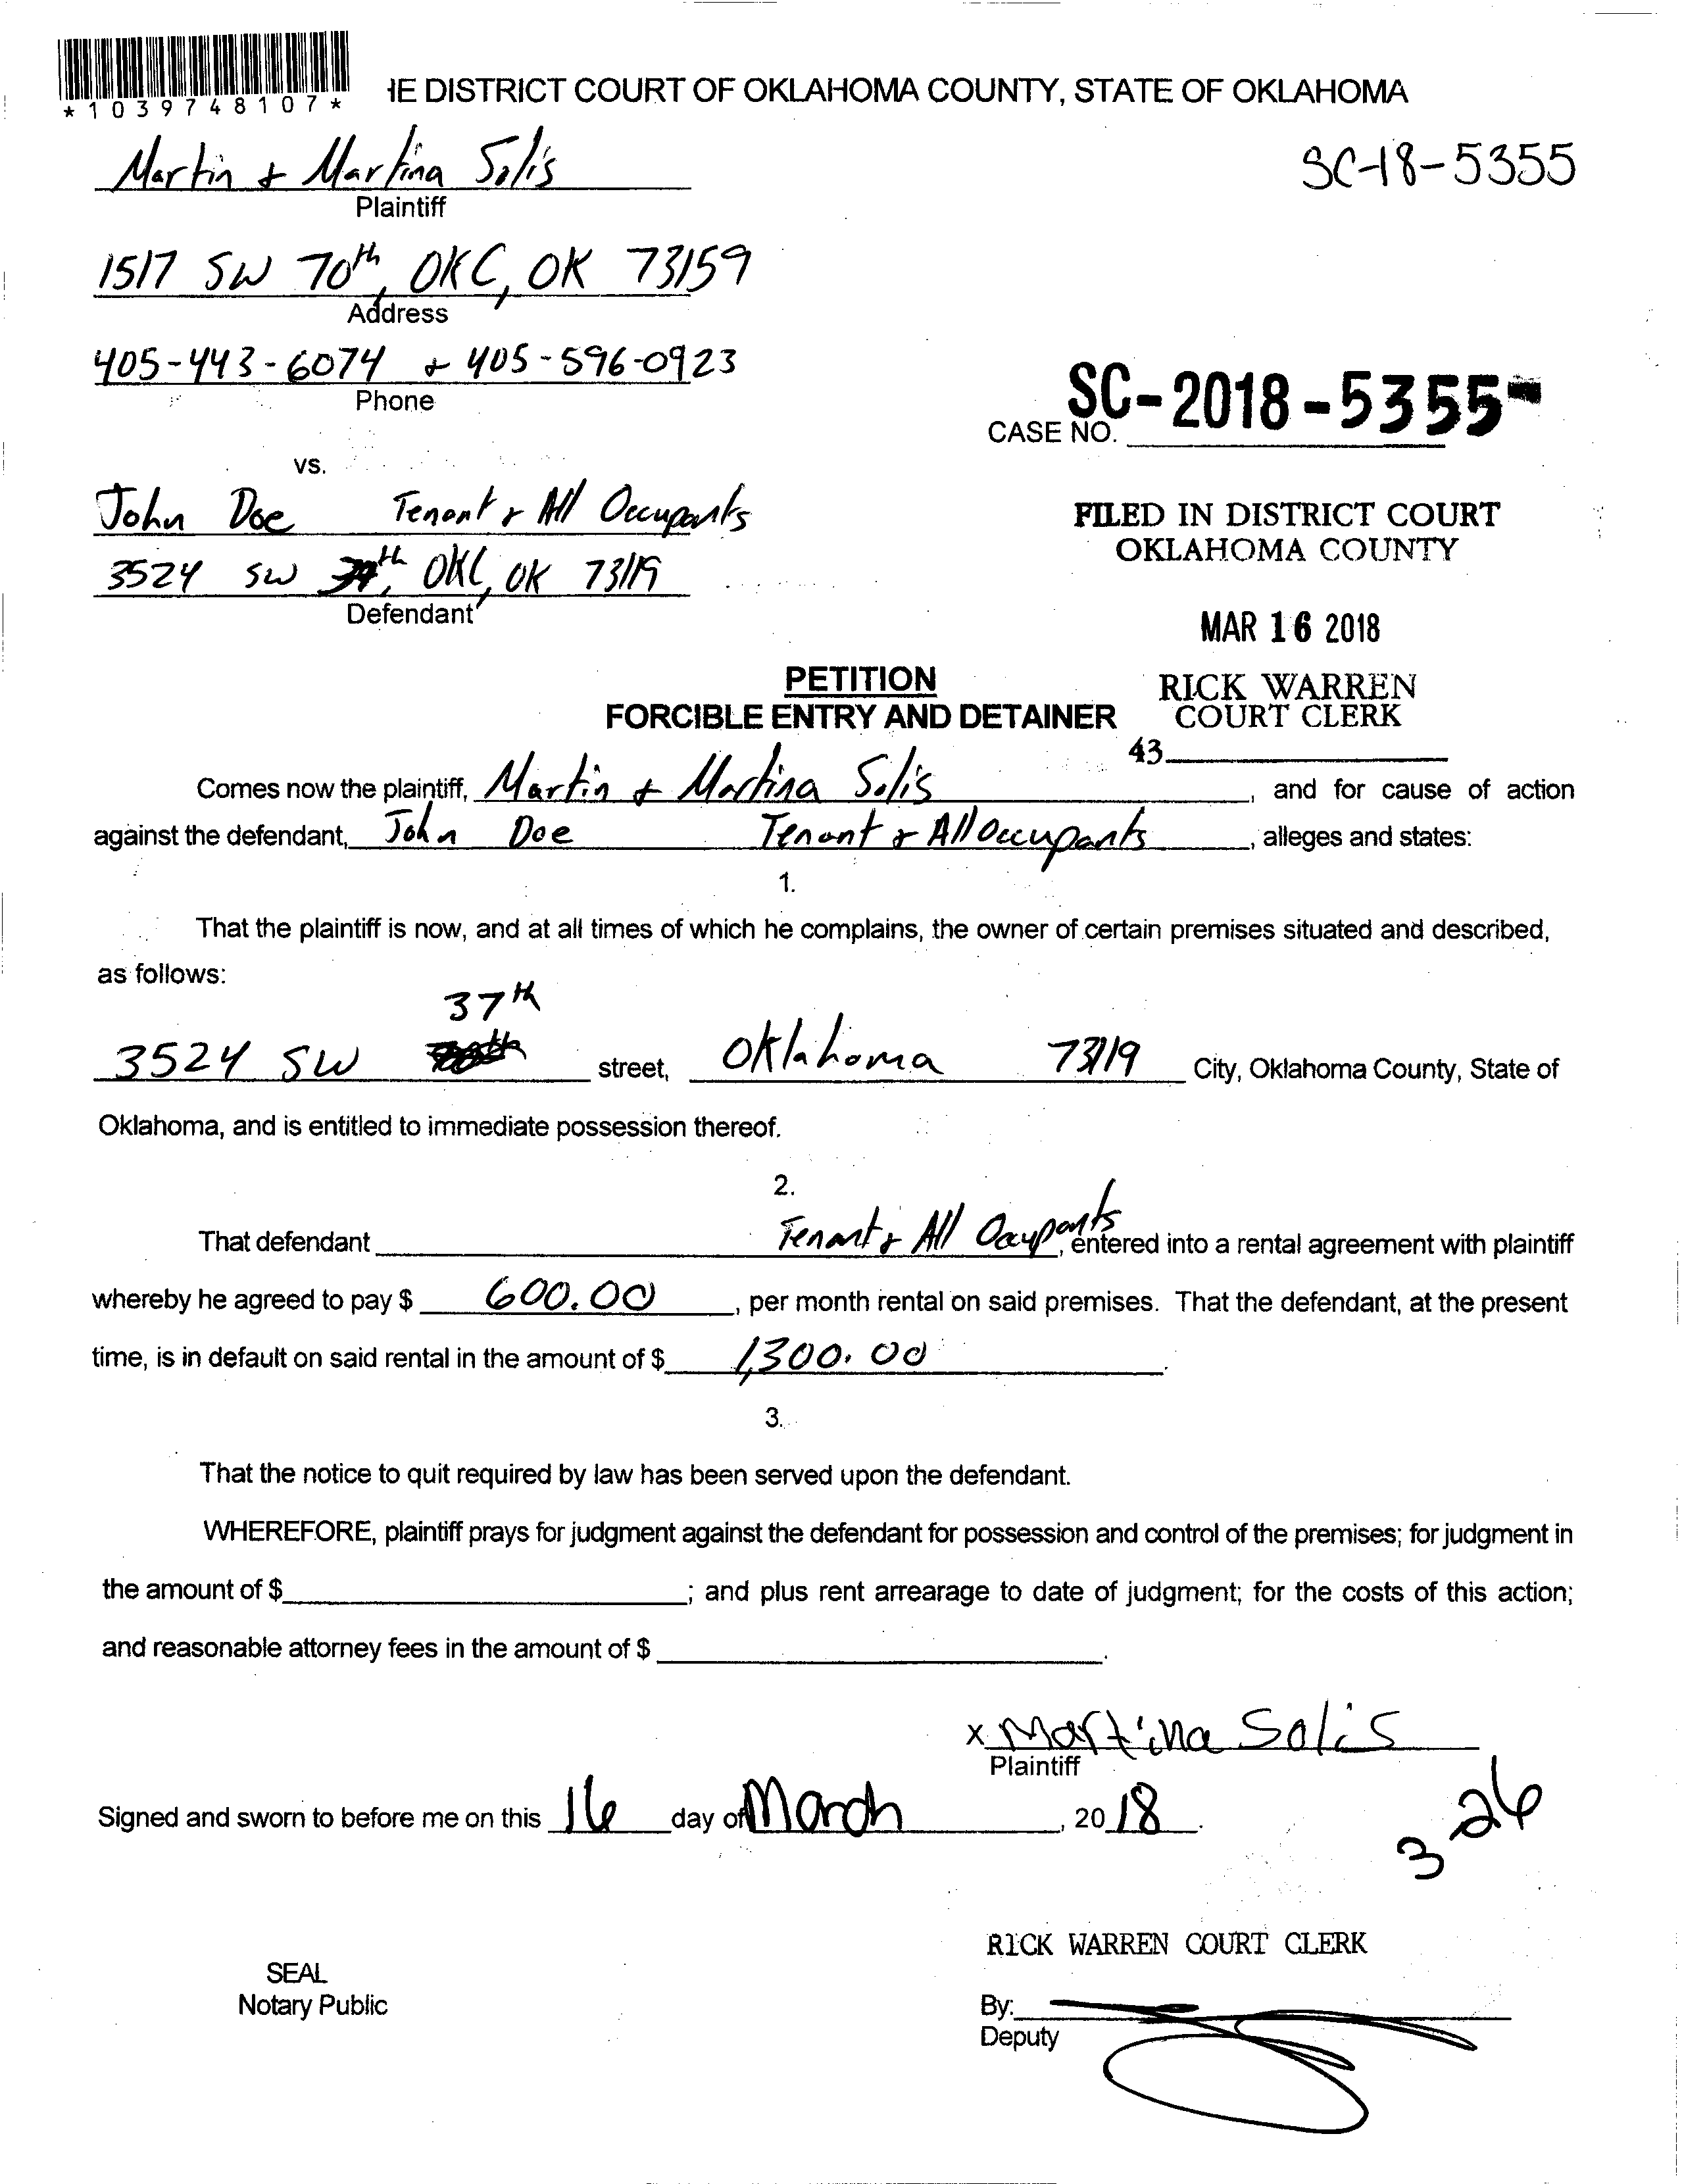 *1039748107*
IE DISTRICT COURT OF OKLAHOMA COUNTY, STATE OF OKLAHOMA
Martin & Martina Solis
SC-18-5355
Plaintiff
1517 SW 70th, OKC, OK 73159
Address
405-443-6074 & 405-596-0923
Phone
CASE NO. SC-2018-5355-
vs.
John Doe Tenant & All Occupants
FILED IN DISTRICT COURT
OKLAHOMA COUNTY
3524 SW 37th, OKC, OK 73119
Defendant
MAR 16 2018
PETITION
RICK WARREN
FORCIBLE ENTRY AND DETAINER
COURT CLERK
43
Comes now the plaintiff, Martin & Martina Solis, and for cause of action
against the defendant, John Doe Tenant & All Occupants, alleges and states:
1.
That the plaintiff is now, and at all times of which he complains, the owner of certain premises situated and described,
as follows:
37th
3524 SW street, Oklahoma 73119 City, Oklahoma County, State of
Oklahoma, and is entitled to immediate possession thereof.
2.
That defendant Tenant & All Occupants, entered into a rental agreement with plaintiff
whereby he agreed to pay $ 600.00, per month rental on said premises. That the defendant, at the present
time, is in default on said rental in the amount of $ 1,300.00.
3.
That the notice to quit required by law has been served upon the defendant.
WHEREFORE, plaintiff prays for judgment against the defendant for possession and control of the premises; for judgment in
the amount of $ ; and plus rent arrearage to date of judgment; for the costs of this action;
and reasonable attorney fees in the amount of $ .
x Martina Solis
Plaintiff
Signed and sworn to before me on this 16 day of March, 2018.
3-26
RICK WARREN COURT CLERK
SEAL
Notary Public
By:
Deputy